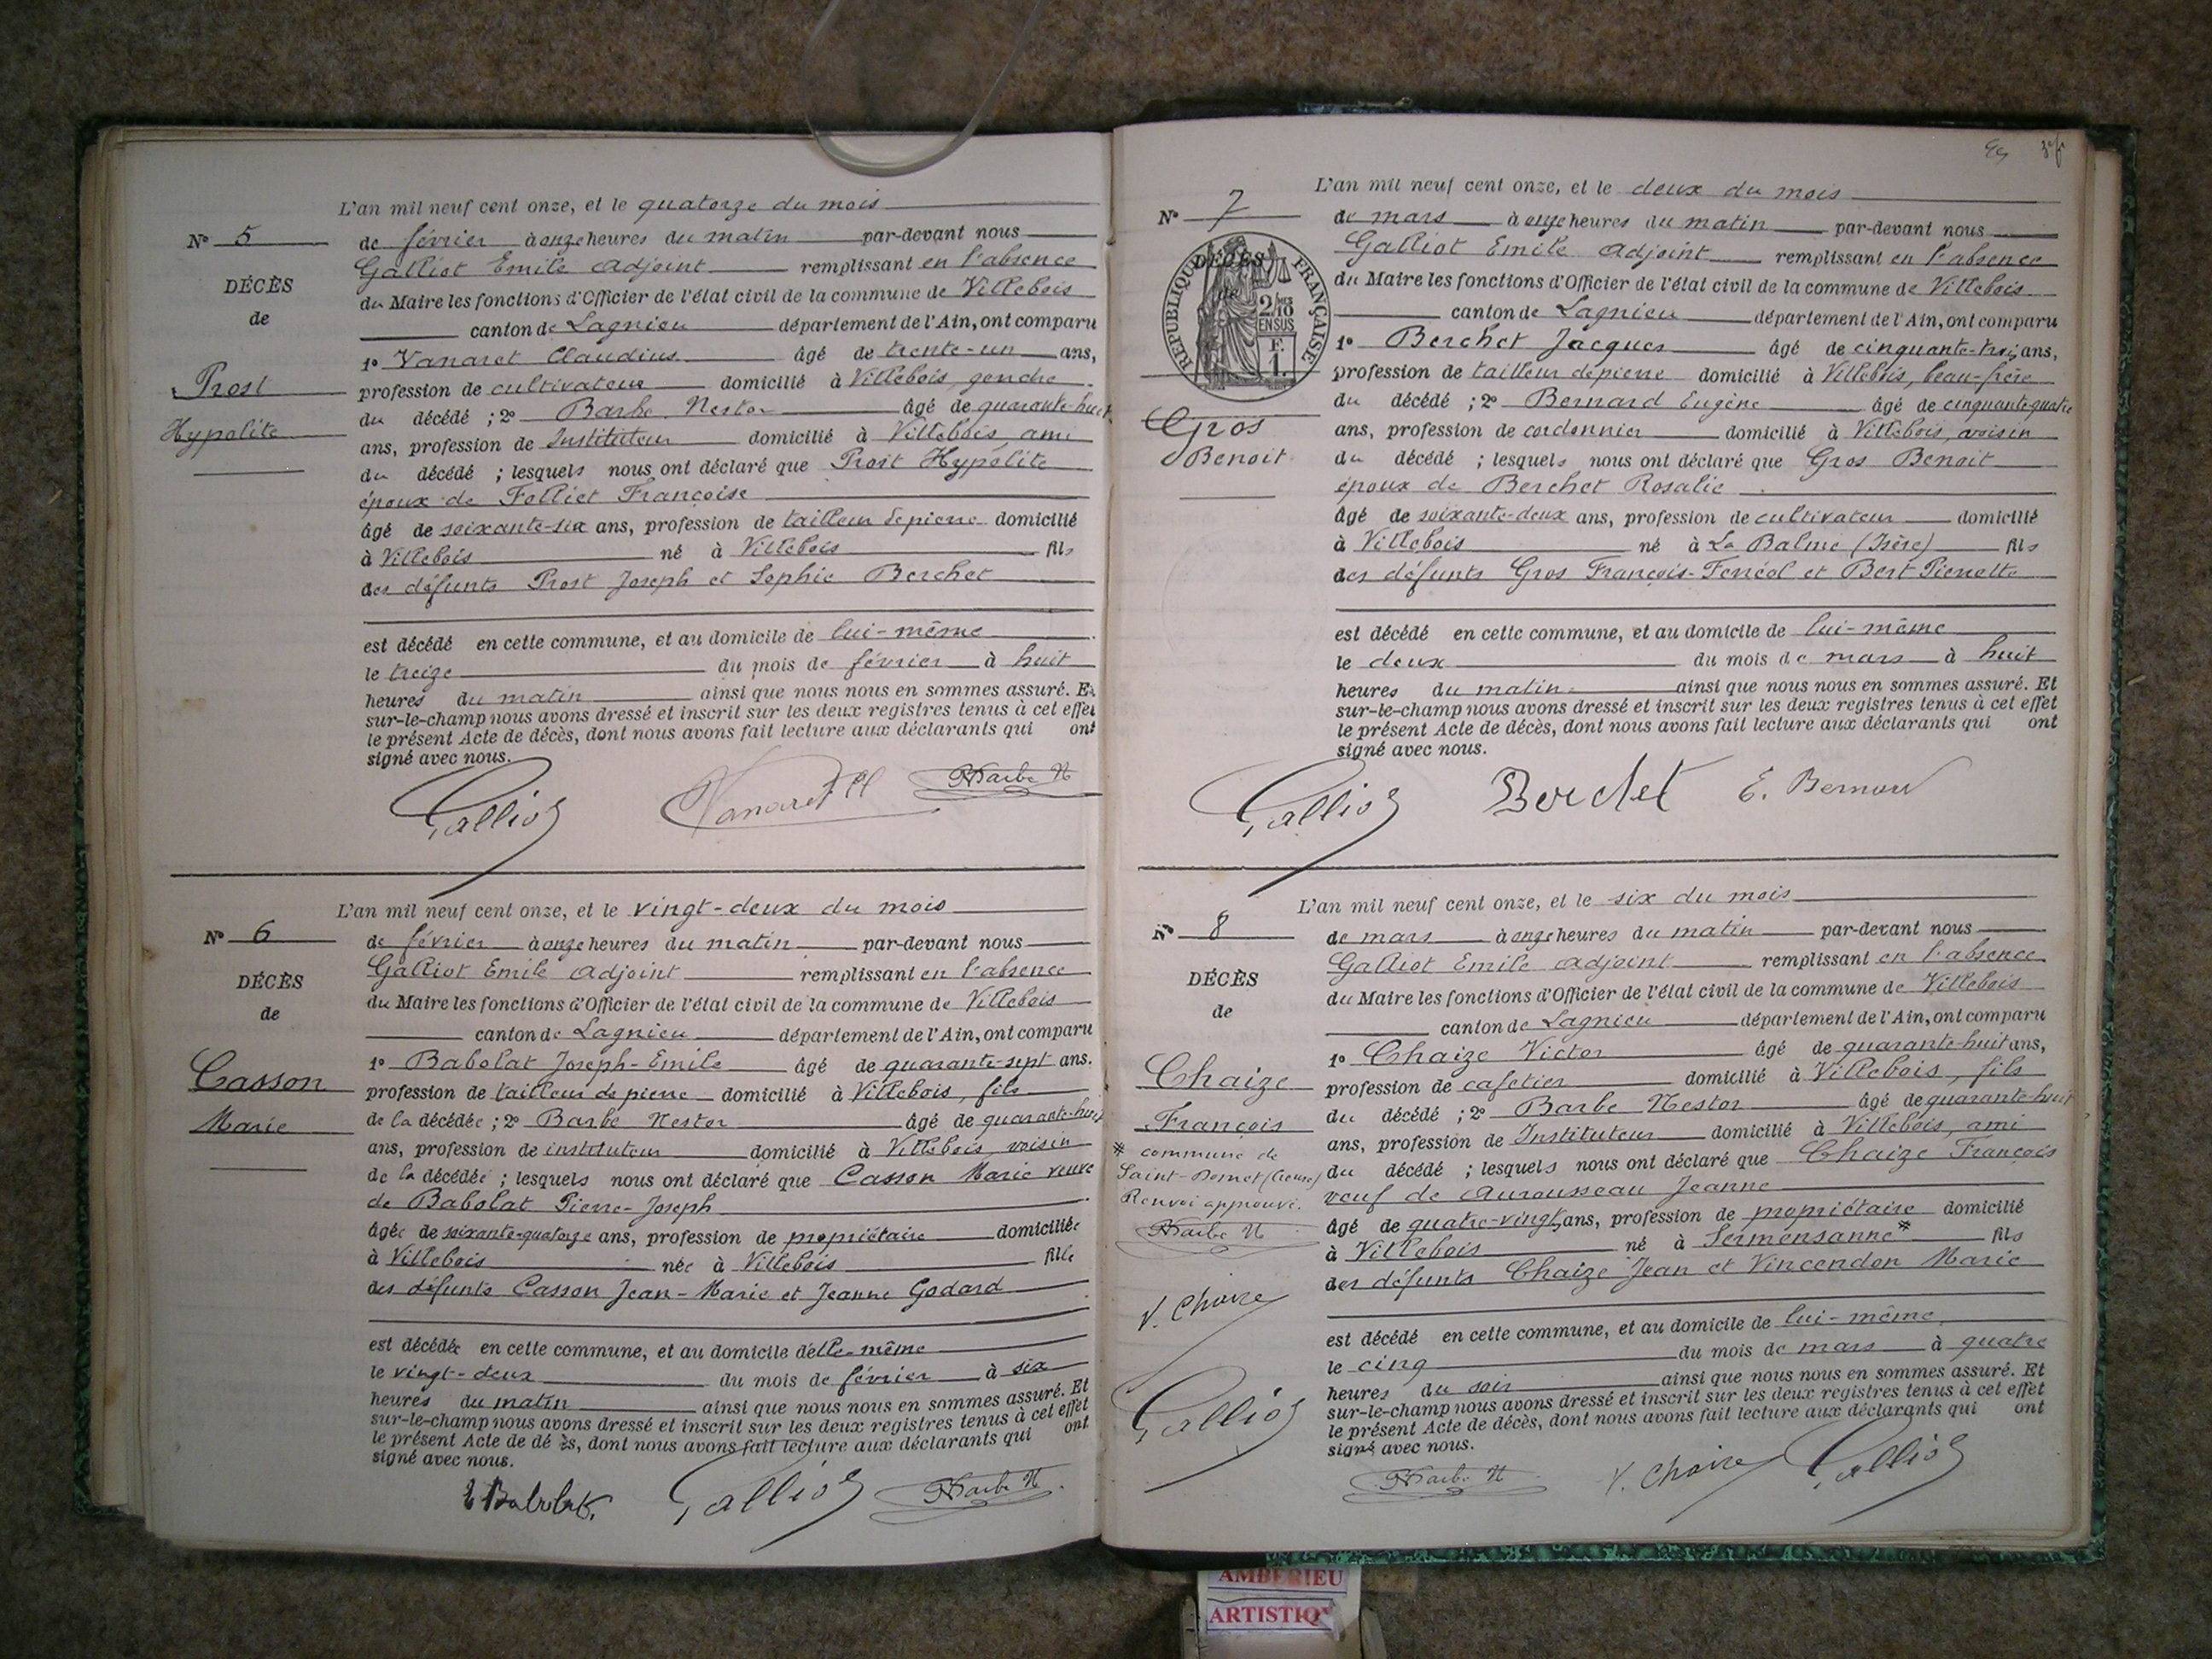 L'an mil neuf cent onze, et le quatorze du mois
N° 5
de février à onze heures du matin par-devant nous
Galliot Emile adjoint remplissant en l'absence
DÉCÈS
du Maire les fonctions d'Officier de l'état civil de la commune de Villebois
de
canton de Lagnieu département de l'Ain, ont comparu
1° Vanaret Claudius âgé de trente-un ans,
Prost
profession de cultivateur domicilié à Villebois, gendre
du décédé ; 2° Barbe Nestor âgé de quarante-huit
Hypolite
ans, profession de Instituteur domicilié à Villebois, ami
du décédé ; lesquels nous ont déclaré que Prost Hypolite
époux de Folliet Françoise
âgé de soixante-six ans, profession de tailleur de pierre domicilié
à Villebois né à Villebois fils
des défunts Prost Joseph et Sophie Berchet
est décédé en cette commune, et au domicile de lui-même
le treize du mois de février à huit
heures du matin ainsi que nous nous en sommes assuré. Et
sur-le-champ nous avons dressé et inscrit sur les deux registres tenus à cet effet
le présent Acte de décès, dont nous avons fait lecture aux déclarants qui ont
signé avec nous.
Galliot Vanaret Cl Barbe N
L'an mil neuf cent onze, et le vingt-deux du mois
N° 6
de février à onze heures du matin par-devant nous
Galliot Emile adjoint remplissant en l'absence
DÉCÈS
du Maire les fonctions d'Officier de l'état civil de la commune de Villebois
de
canton de Lagnieu département de l'Ain, ont comparu
1° Babolat Joseph-Emile âgé de quarante-sept ans.
Casson
profession de tailleur de pierre domicilié à Villebois, fils
Marie
de la décédée ; 2° Barbe Nestor âgé de quarante-huit
ans, profession de instituteur domicilié à Villebois, voisin
de la décédée ; lesquels nous ont déclaré que Casson Marie veuve
de Babolat Pierre-Joseph
âgée de soixante-quatorze ans, profession de propriétaire domiciliée
à Villebois née à Villebois fille
des défunts Casson Jean-Marie et Jeanne Godard
est décédée en cette commune, et au domicile d'elle-même
le vingt-deux du mois de février à six
heures du matin ainsi que nous nous en sommes assuré. Et
sur-le-champ nous avons dressé et inscrit sur les deux registres tenus à cet effet
le présent Acte de dé ès, dont nous avons fait lecture aux déclarants qui ont
signé avec nous.
E Babolat Galliot Barbe N
L'an mil neuf cent onze, et le deux du mois
N° 7
de mars à onze heures du matin par-devant nous
Galliot Emile adjoint remplissant en l'absence
DÉCÈS
de
RÉPUBLIQUE FRANÇAISE
2/10 EN SUS
F. 1.
du Maire les fonctions d'Officier de l'état civil de la commune de Villebois
canton de Lagnieu département de l'Ain, ont comparu
1° Berchet Jacques âgé de cinquante-trois ans,
profession de tailleur de pierre domicilié à Villebois, beau-frère
du décédé ; 2° Bernard Eugène âgé de cinquante-quatre
Gros
ans, profession de cordonnier domicilié à Villebois, voisin
Benoit
du décédé ; lesquels nous ont déclaré que Gros Benoit
époux de Berchet Rosalie
âgé de soixante-deux ans, profession de cultivateur domicilié
à Villebois né à La Balme (Isère) fils
des défunts Gros François-Ferréol et Bert Pierrette
est décédé en cette commune, et au domicile de lui-même
le deux du mois de mars à huit
heures du matin ainsi que nous nous en sommes assuré. Et
sur-le-champ nous avons dressé et inscrit sur les deux registres tenus à cet effet
le présent Acte de décès, dont nous avons fait lecture aux déclarants qui ont
signé avec nous.
Galliot Berchet E. Bernard
L'an mil neuf cent onze, et le six du mois
N° 8
de mars à onze heures du matin par-devant nous
Galliot Emile adjoint remplissant en l'absence
DÉCÈS
du Maire les fonctions d'Officier de l'état civil de la commune de Villebois
de
canton de Lagnieu département de l'Ain, ont comparu
1° Chaize Victor âgé de quarante-huit ans,
Chaize
profession de cafetier domicilié à Villebois, fils
François
du décédé ; 2° Barbe Nestor âgé de quarante-huit
ans, profession de Instituteur domicilié à Villebois, ami
du décédé ; lesquels nous ont déclaré que Chaize François
veuf de Aurousseau Jeanne
âgé de quatre-vingt ans, profession de propriétaire domicilié
à Villebois né à Sermensanne * fils
des défunts Chaize Jean et Vincendon Marie
* commune de
Saint-Domet (Creuse)
Renvoi approuvé.
Barbe N
V. Chaize
Galliot
est décédé en cette commune, et au domicile de lui-même
le cinq du mois de mars à quatre
heures du soir ainsi que nous nous en sommes assuré. Et
sur-le-champ nous avons dressé et inscrit sur les deux registres tenus à cet effet
le présent Acte de décès, dont nous avons fait lecture aux déclarants qui ont
signé avec nous.
Barbe N V. Chaize Galliot
AMBERIEU
ARTISTIQ